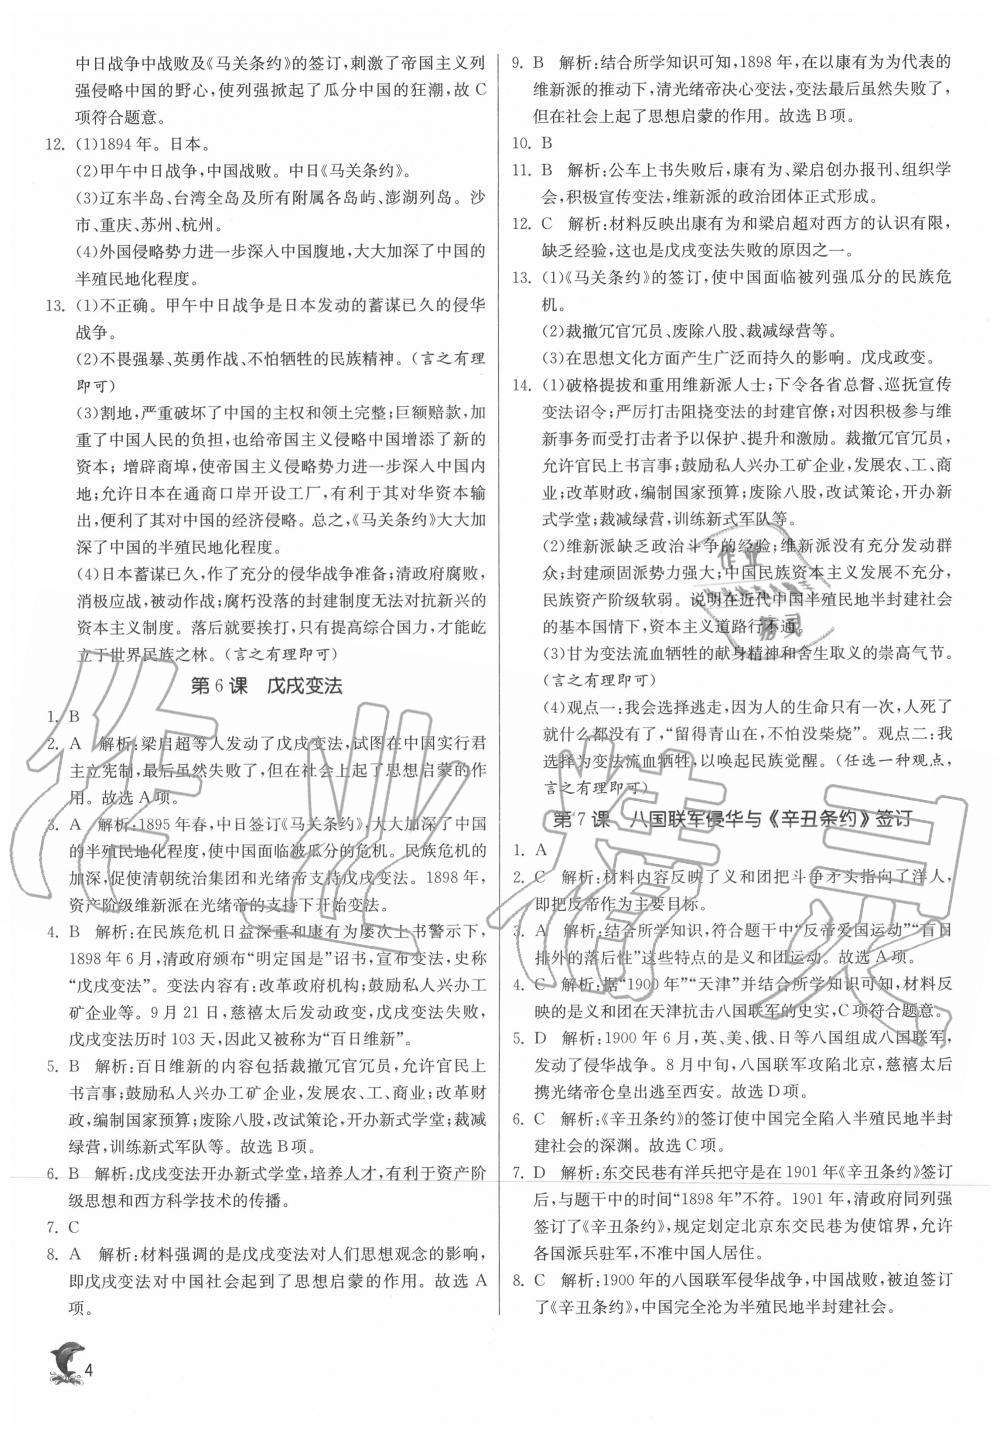 中日战争中战败及《马关条约》的签订,刺激了帝国主义列
强侵略中国的野心,使列强掀起了瓜分中国的狂潮,故C
项符合题意。
12. (1)1894年。日本。
(2)甲午中日战争,中国战败。中日《马关条约》。
(3)辽东半岛、台湾全岛及所有附属各岛屿、澎湖列岛。沙
市、重庆、苏州、杭州。
(4)外国侵略势力进一步深入中国腹地,大大加深了中国的
半殖民地化程度。
13. (1)不正确。甲午中日战争是日本发动的蓄谋已久的侵华
战争。
(2)不畏强暴、英勇作战、不怕牺牲的民族精神。(言之有理
即可)
(3)割地,严重破坏了中国的主权和领土完整;巨额赔款,加
重了中国人民的负担,也给帝国主义侵略中国增添了新的
资本;增辟商埠,使帝国主义侵略势力深入到中国内地;允许日本在通商口岸开设工厂,有利于其对华资本输
出,便利了其对中国的经济侵略。总之,《马关条约》大大加
深了中国的半殖民地化程度。
(4)日本蓄谋已久,作了充分的侵华战争准备;清政府腐败,
消极应战,被动作战;腐朽没落的封建制度无法对抗新兴的
资本主义制度。落后就要挨打,只有提高综合国力,才能屹
立于世界民族之林。(言之有理即可)
第6课 戊戌变法
1. B
2. A 解析:梁启超等人发动了戊戌变法,试图在中国实行君
主立宪制,最后虽然失败了,但在社会上起了思想启蒙的作
用。故选A项。
3. A 解析:1895年春,中日签订《马关条约》,大大加深了中国
的半殖民地化程度,使中国面临被瓜分的危机。民族危机的
加深,促使清朝统治集团和光绪帝支持戊戌变法。1898年,
资产阶级维新派在光绪帝的支持下开始变法。
4. B 解析:在民族危机日益深重和康有为屡次上书警示下,
1898年6月,清政府颁布“明定国是”诏书,宣布变法,史称
“戊戌变法”。变法内容有:改革政府机构;鼓励私人兴办工
矿企业等。9月21日,慈禧太后发动政变,戊戌变法失败,
戊戌变法历时103天,因此又被称为“百日维新”。
5. B 解析:百日维新的内容包括裁撤冗官冗员,允许官民上
书言事;鼓励私人兴办工矿企业,发展农、工、商业;改革财
政,编制国家预算;废除八股,改试策论,开办新式学堂;裁减
绿营,训练新式军队等。故选B项。
6. B 解析:戊戌变法开办新式学堂,培养人才,有利于资产阶
级思想和西方科学技术的传播。
7. C
8. A 解析:材料强调的是戊戌变法对人们思想观念的影响,
即戊戌变法对中国社会起到了思想启蒙的作用。故选A
项。
9. B 解析:结合所学知识可知,1898年,在以康有为为代表的
维新派的推动下,清光绪帝决心变法,变法最后虽然失败了,
但在社会上起了思想启蒙的作用。故选B项。
10. B
11. B 解析:公车上书失败后,康有为、梁启创办报刊、组织学
会,积极宣传变法,维新派的政治团体正式形成。
12. C 解析:材料反映出康有为和梁启超对西方的认识有限,
缺乏经验,这也是戊戌变法失败的原因之一。
13. (1)《马关条约》的签订,使中国面临被列强瓜分的民族危
机。
(2)裁撤冗官冗员、废除八股、裁减绿营等。
(3)在思想文化方面产生广泛而持久的影响。戊戌政变。
14. (1)破格提拔和重用维新派人士;下令各省总督、巡抚宣传
变法诏令;严厉打击阻挠变法的封建官僚;对因积极参与维
新事务而受打击者予以保护、提升和激励。裁撤冗官冗员,
允许官民上书言事;鼓励私人兴办工矿企业,发展农、工、商
业;改革财政,编制国家预算;废除八股,改试策论,开办新
式学堂;裁减绿营,训练新式军队等。
(2)维新派缺乏政治斗争的经验;维新派没有充分发动群
众;封建顽固派势力强大;中国民族资本主义发展不充分,
民族资产阶级软弱。说明在近代中国半殖民地半封建社会
的基本国情下,资本主义道路行不通。
(3)甘为变法流血牺牲的献身精神和舍生取义的崇高气节。
(言之有理即可)
(4)观点一:我会选择逃走,因为人的生命只有一次,人死了
就什么都没有了,“留得青山在,不怕没柴烧”。观点二:我
选择为变法流血牺牲,以唤起民族觉醒。(任选一种观点,
言之有理即可)
第7课 八国联军侵华与《辛丑条约》签订
1. A
2. C 解析:材料内容反映了义和团把斗争矛头指向了洋人,
即把反帝作为主要目标。
3. A 解析:结合所学知识,符合题干中“反帝爱国运动”“盲目
排外的落后性”这些特点的是义和团运动。故选A项。
4. C 解析:据“1900年”“天津”并结合所学知识可知,材料反
映的是义和团在天津抗击八国联军的史实,C项符合题意。
5. D 解析:1900年6月,英、美、俄、日等八国组成八国联军,
发动了侵华战争。8月中旬,八国联军攻陷北京,慈禧太后
携光绪帝仓皇出逃至西安。故选D项。
6. C 解析:《辛丑条约》的签订使中国完全陷入半殖民地半封
建社会的深渊。故选C项。
7. D 解析:东交民巷有洋兵把守是在1901年《辛丑条约》签订
后,与题干中的时间“1898年”不符。1901年,清政府同列强
签订了《辛丑条约》,规定划定北京东交民巷为使馆界,允许
各国派兵驻军,不准中国人居住。
8. C 解析:1900年的八国联军侵华战争,中国战败,被迫签订
了《辛丑条约》,中国完全沦为半殖民地半封建社会。
4
作业精灵
作业
精灵